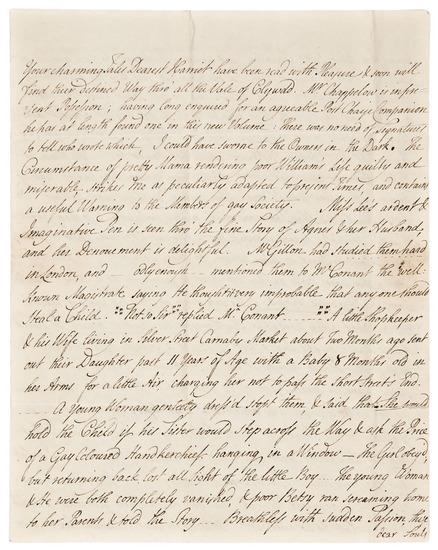 Your charming Tales Dearest Harriet have been read with Pleasure & soon will
find their destined Way thro all the Vale of Clwydd. Mr. Chappelow is in pre-
sent Possession; having long enquired for an agreeable Post Chaise Companion
he has at length found one in this new Volume: there was no need of Signatures
to tell who wrote which, I could have sworne to the Owners in the Dark. The
Circumstance of pretty Mama rendring poor William's Life guilty and
miserable, strikes me as peculiarly adapted to present Times, and contains
a useful Warning to the Members of gay Society. Miss Lee's ardent &
Imaginative Pen is seen thro' the fine Story of Agnes & her Husband,
and her Denouement is delightful. Mr. Gillon had studied them hard
in London, and — odly enough — mentioned them to Mr. Conant the well-
known Magistrate saying He thought it very improbable that any one should
steal a Child. Not so Sir replied Mr. Conant A little Shopkeeper
& his Wife living in Silver Street Carnaby Market about two Months ago sent
out their Daughter past 11 Years of Age with a Baby 8 Months old in
her Arms for a little Air charging her not to pass the Short Street's End.
— A young Woman genteelly dress'd stopt them & said that She would
hold the Child if his Sister would Step across the Way & ask the Price
of a Gay Coloured Handkerchief hanging in a Window — The Girl obey'd,
but returning back lost all sight of the little Boy — The young Woman
& He were both completely vanished & poor Betsy ran screaming home
to her Parents & told the Story — Breathless with sudden Passion these
dear Souls